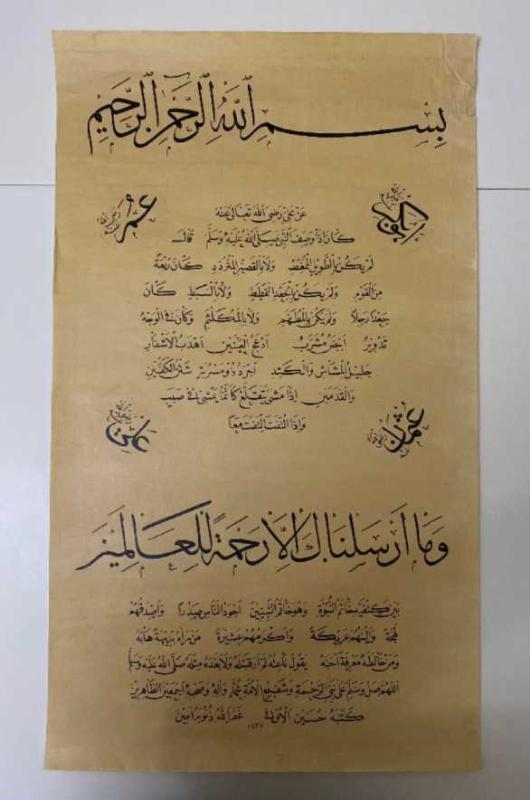 بِسْمِ اللهِ الرَّحْمٰنِ الرَّحِيمِ
أبو بكر
رضي الله عنه
عمر
رضي الله عنه
عَنْ عَلِيٍّ رَضِيَ اللهُ تَعَالَى عَنْهُ
كَانَ إِذَا وَصَفَ النَّبِيَّ صَلَّى اللهُ عَلَيْهِ وَسَلَّمَ قَالَ
لَمْ يَكُنْ بِالطَّوِيلِ الْمُمَغَّطِ وَلَا بِالْقَصِيرِ الْمُتَرَدِّدِ كَانَ رَبْعَةً
مِنَ الْقَوْمِ وَلَمْ يَكُنْ بِالْجَعْدِ الْقَطَطِ وَلَا بِالسَّبِطِ كَانَ
جَعْدًا رَجِلًا وَلَمْ يَكُنْ بِالْمُطَهَّمِ وَلَا بِالْمُكَلْثَمِ وَكَانَ فِي الْوَجْهِ
تَدْوِيرٌ أَبْيَضُ مُشْرَبٌ أَدْعَجُ الْعَيْنَيْنِ أَهْدَبُ الْأَشْفَارِ
جَلِيلُ الْمُشَاشِ وَالْكَتَدِ أَجْرَدُ ذُو مَسْرُبَةٍ شَثْنُ الْكَفَّيْنِ
وَالْقَدَمَيْنِ إِذَا مَشَى يَتَقَلَّعُ كَأَنَّمَا يَمْشِي فِي صَبَبٍ
وَإِذَا الْتَفَتَ الْتَفَتَ مَعًا
عثمان
رضي الله عنه
علي
رضي الله عنه
وَمَا أَرْسَلْنَاكَ إِلَّا رَحْمَةً لِلْعَالَمِينَ
بَيْنَ كَتِفَيْهِ خَاتَمُ النُّبُوَّةِ وَهُوَ خَاتَمُ النَّبِيِّينَ أَجْوَدُ النَّاسِ صَدْرًا وَأَصْدَقُهُمْ
لَهْجَةً وَأَلْيَنُهُمْ عَرِيكَةً وَأَكْرَمُهُمْ عَشِيرَةً مَنْ رَآهُ بَدِيهَةً هَابَهُ
وَمَنْ خَالَطَهُ مَعْرِفَةً أَحَبَّهُ يَقُولُ نَاعِتُهُ لَمْ أَرَ قَبْلَهُ وَلَا بَعْدَهُ مِثْلَهُ صَلَّى اللهُ عَلَيْهِ وَسَلَّمَ
اللّٰهُمَّ صَلِّ وَسَلِّمْ عَلَى نَبِيِّ الرَّحْمَةِ وَشَفِيعِ الْأُمَّةِ مُحَمَّدٍ وَآلِهِ وَصَحْبِهِ أَجْمَعِينَ الطَّاهِرِينَ
كَتَبَهُ حُسَيْن غَفَرَ اللهُ ذُنُوبَهُ آمِين